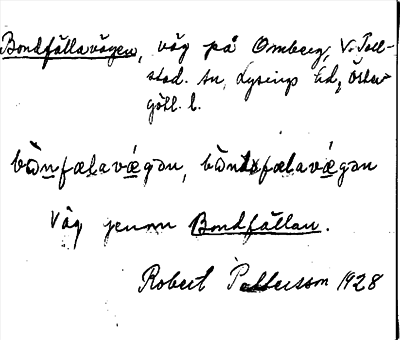 Bondfällavägen, väg på Omberg, V. Toll-
stad sn, Lysings hd, Öster-
götl. l.
bὼnfælavǽgən, bὼndfælavǽgən
Väg genom Bondfällan.
Robert Pettersson 1928